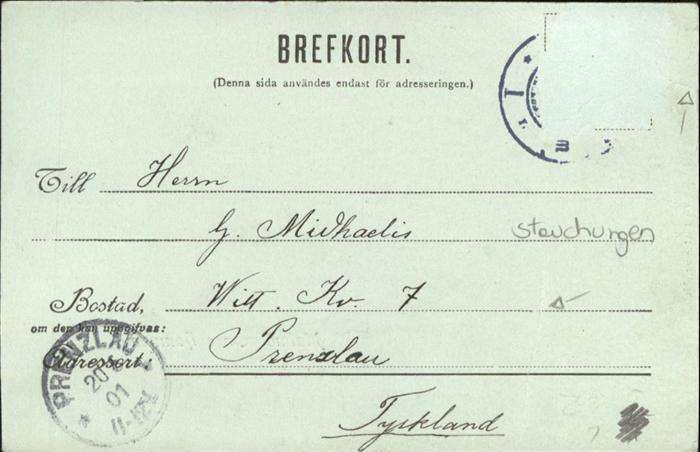 BREFKORT.
(Denna sida användes endast för adresseringen.)
Till Herrn
G. Michaelis
stauchungen
Bostad, Witt. Kv. 7
om den kan uppgifvas:
Adressort: Prenzlau
PRENZLAU
20
01
11-12V.
Tyskland